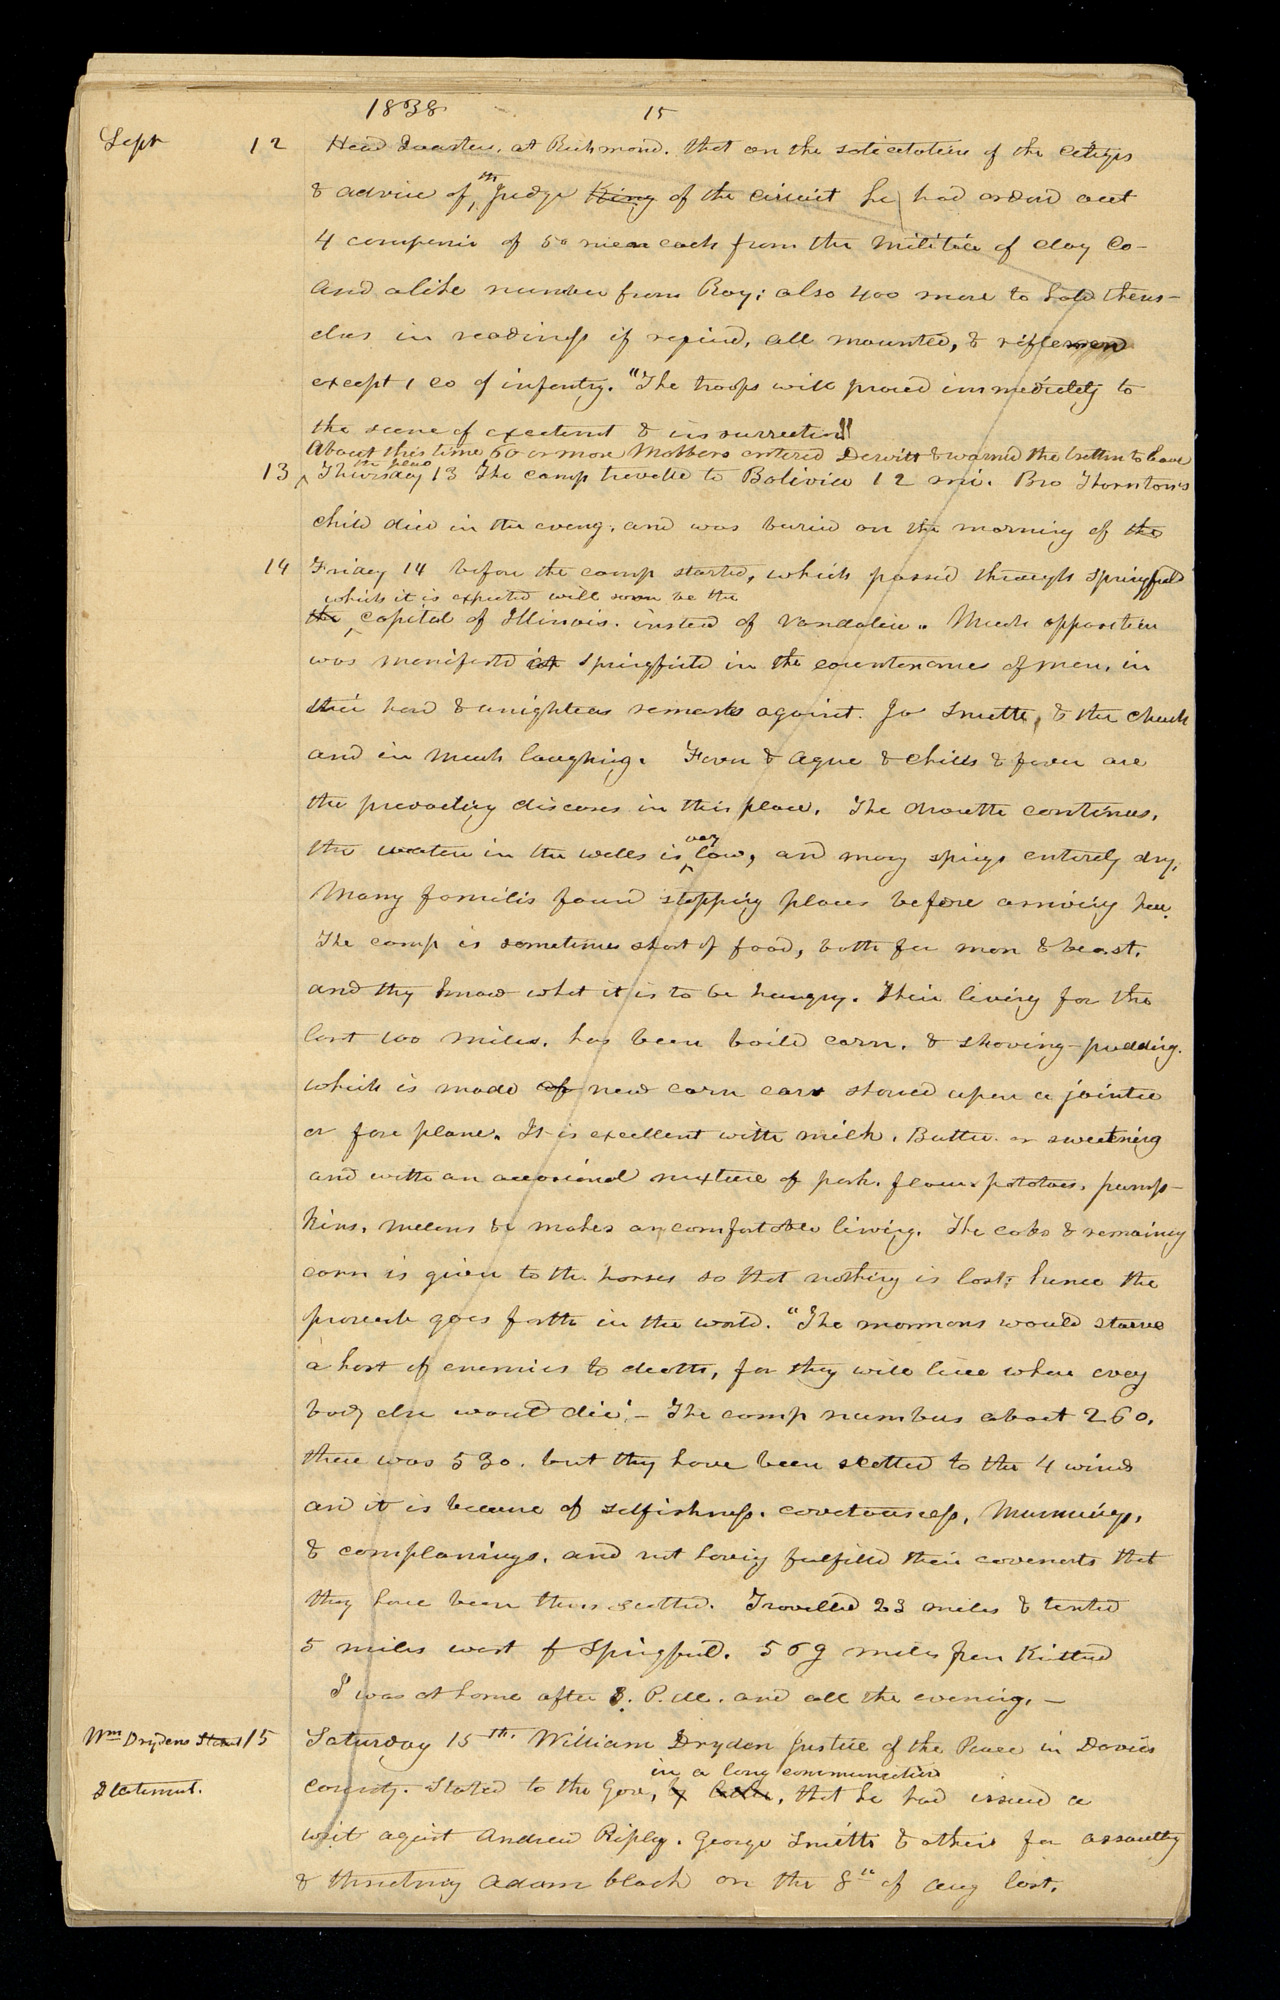 1838 15
Sept 12 Head Quarters, at Richmond. that on the solicitation of the citizens
& advice of the Judge King of the circuit he had orderd out
4 companies of 50 men each from the militia of Clay Co-
and a like number from Ray; also 400 more to hold thems-
elves in readiness if requird, all mounted, & riflemen
except 1 co of infantry. "The troops will proceed immediately to
the scene of excitement & insurrection"
About this time 60 or more Mobbers entered Dewitt & warned the brethren to leave
the place
13 Thursday 13 The camp travelled to Bolivia 12 mi. Bro Thornton's
child died in the evening. and was buried on the morning of the
14 Friday 14 before the camp started, which passed through Springfield
which it is expected will soon be the
the capital of Illinois. instead of Vandalia. Much opposition
was manifested in Springfield in the countenances of men, in
their hard & unrighteous remarks against. Jo Smith, & the church
and in much laughing. Fever & Ague & chills & fever are
the prevailing diseases in this place. The drouth continues,
the water in the wells is very low, and many springs entirely dry.
Many families found stopping places before arriving here.
The camp is sometimes short of food, both for man & beast.
and they know what it is to be hungry. Their living for the
last 100 miles. has been boild corn. & shaving-pudding.
which is made of new corn ears shoved upon a jointer
or fore plane. It is excellent with milk. Butter. or sweetening
and with an occasional mixture of pork. flour. potatoes. pump-
kins. melons &c makes any comfortable living. The cobs & remaining
corn is given to the horses so that nothing is lost: hence the
proverb goes forth in the world. "The mormons would starve
a host of enemies to death, for they will live where every
body else would die".— The camp numbers about 260.
there was 530. but they have been scatterd to the 4 winds
and it is because of selfishness. covetousness, Murmurings.
& complainings. and not having fulfilled their covenants that
they have been thus scatterd. Travelled 23 miles & tented
5 miles west of Springfield. 569 miles from Kirtland
I was at home after 3. P.M. and all the evening.—
Wm Drydens Statmt 15 Saturday 15th. William Dryden Justice of the Peace in Davies
in a long communication
Statement. county. Stated to the Gov, by letter, that he had issued a
writ against Andrew Ripley. George Smith & others for assaulting
& threatning Adam Black on the 8th of Aug last.